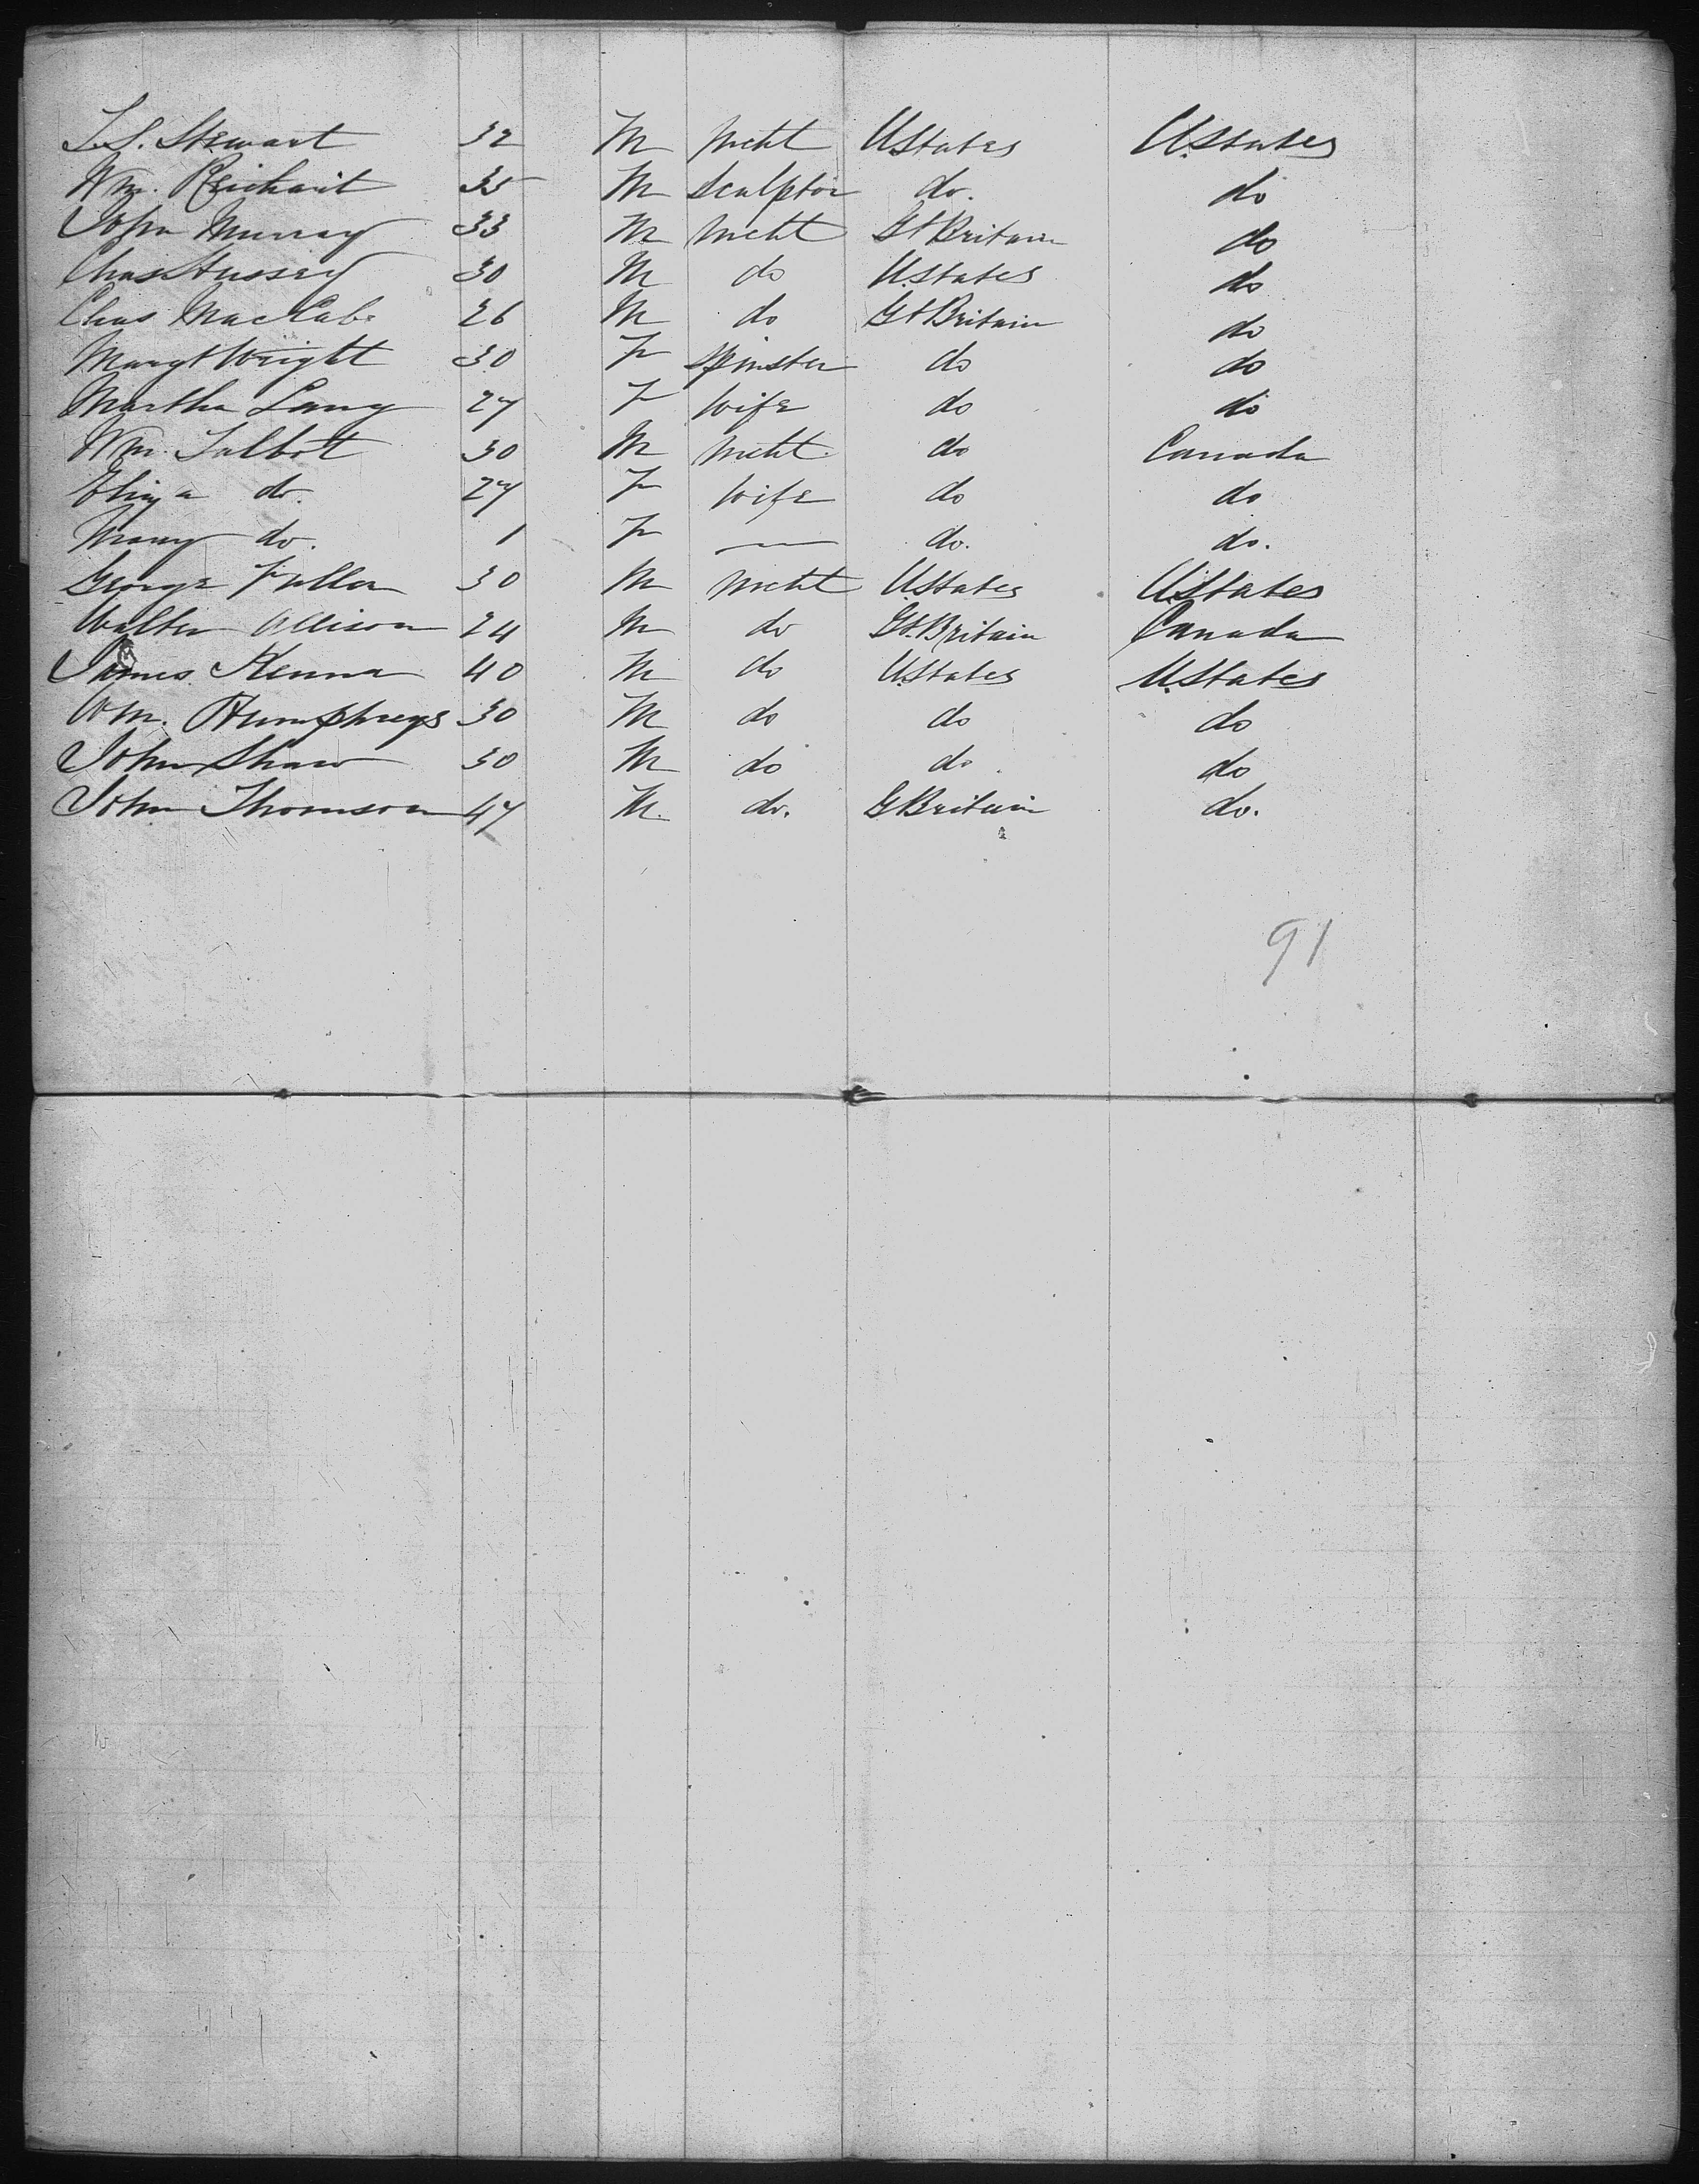 T.S. Stewart 32 M Mcht UStates U.States
Wm. Reichart 35 M Sculptor do. do
John Murray 33 M Mcht Gt Britain do
Chas Hussey 30 M do U.States do
Chas MacCabe 26 M do Gt Britain do
Margt Wright 30 F Spinster do do
Martha Lang 27 F Wife do do
Wm. Talbot 30 M Mcht. do Canada
Eliza do. 27 F Wife do do
Mary do. 1 F — do. do.
George Fuller 30 M Mcht UStates UStates
Walter Allison 24 M do Gt. Britain Canada
James Kenna 40 M do U.States U.States
Wm. Humphreys 30 M do do do
John Shaw 30 M do do. do
John Thomson 47 M. do. G Britain do.
91